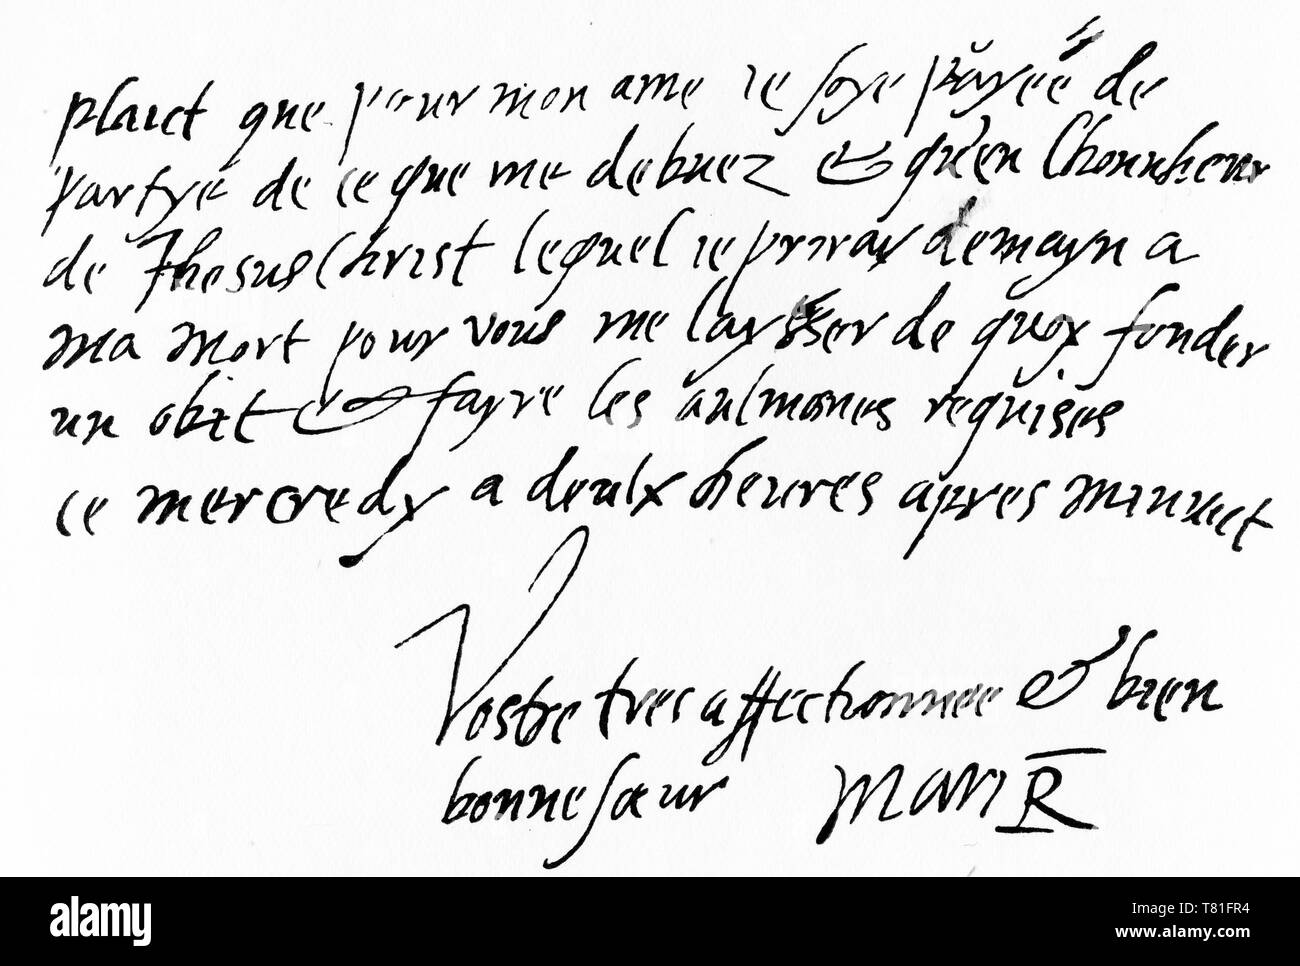 plaict que pour mon ame ie soye payée de
partye de ce que me debuez & qu'en lhonnheur
de Jhesus Christ lequel ie priray demayn a
ma mort pour vous me laysser de quoy fonder
un obit & fayre les aulmones requises
ce mercredy a deulx heures apres minuict
Vostre tres affectionnee & bien
bonne sœur Mari R
alamy
alamy
a
a
a
Image ID: T81FR4
www.alamy.com